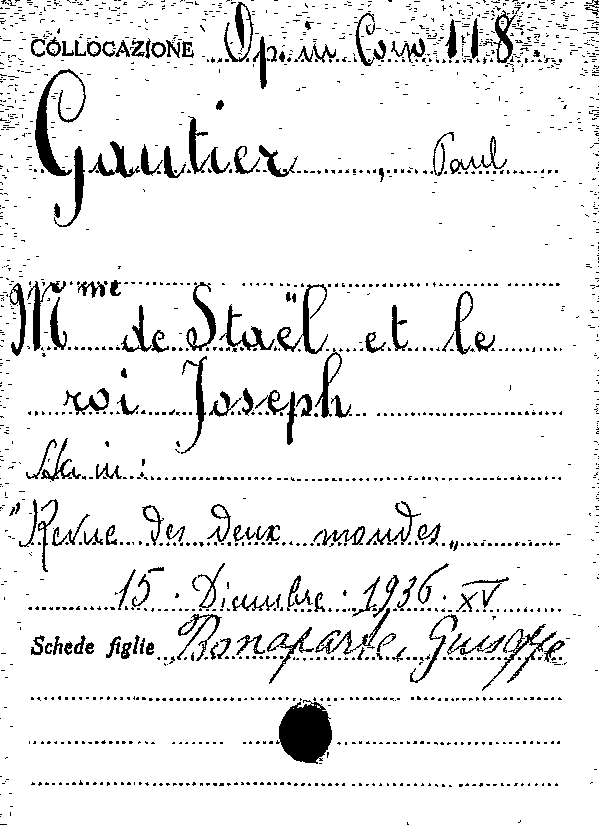 COLLOCAZIONE Op. in Corso 118.
Gautier, Paul
Mme de Staël et le
roi Joseph
Sta in:
"Revue des deux mondes„
15. Dicembre. 1936. XV
Schede figlie Bonaparte, Giuseppe